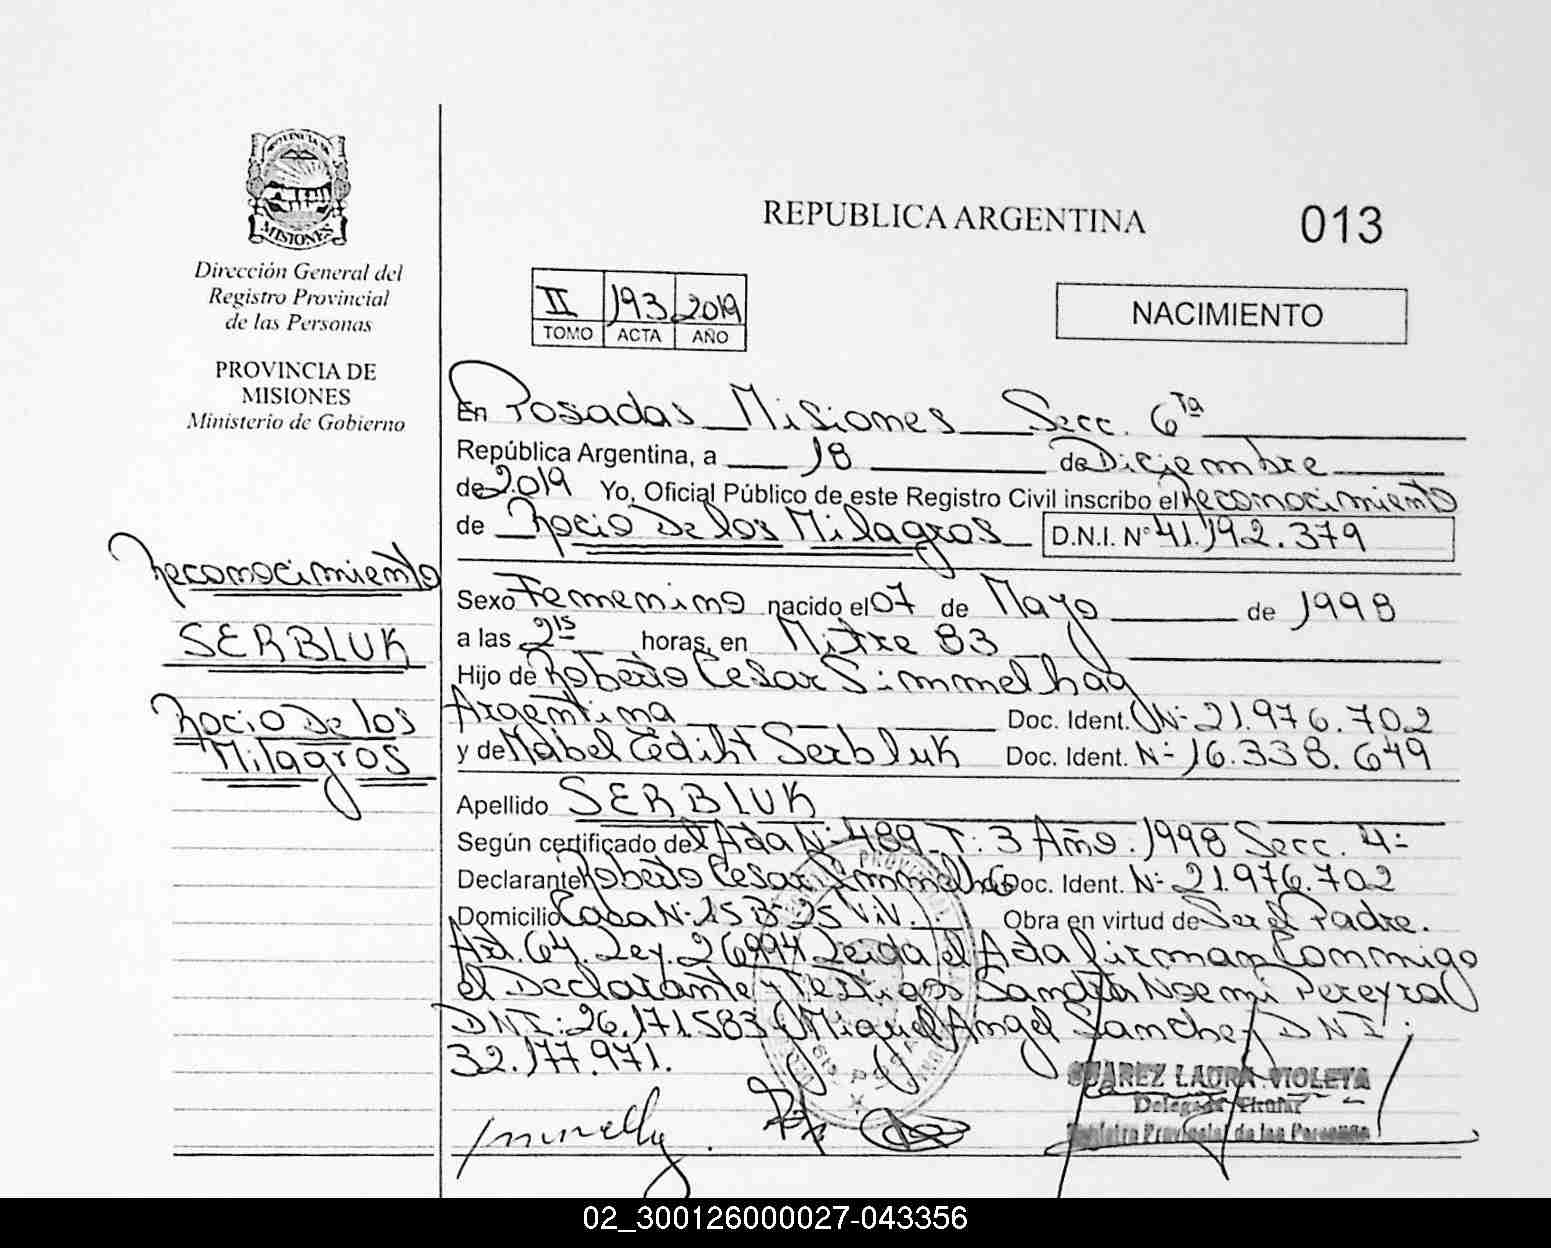 PROVINCIA DE
MISIONES
Dirección General del
Registro Provincial
de las Personas
PROVINCIA DE
MISIONES
Ministerio de Gobierno
Reconocimiento
SERBLUK
Rocio De los
Milagros
REPUBLICA ARGENTINA 013
II 193 2019
TOMO ACTA AÑO
NACIMIENTO
En Posadas Misiones Secc. 6ta
República Argentina, a 18 de Diciembre
de 2019 Yo, Oficial Público de este Registro Civil inscribo el Reconocimiento
de Rocio De los Milagros D.N.I. N° 41.192.379
Sexo Femenino nacido el 07 de Mayo de 1998
a las 2hs horas, en Mitre 83
Hijo de Roberto Cesar Simmelhag
Argentina Doc. Ident. N- 21.976.702
y de Mabel Ediht Serbluk Doc. Ident. N- 16.338.649
Apellido SERBLUK
Según certificado de el Acta N- 489 T: 3 Año: 1998 Secc. 4-
Declarante Roberto Cesar Simmelhag Doc. Ident. N- 21.976.702
Domicilio Casa N- 25 B- 25 Viv. Obra en virtud de Ser el Padre.
Art. 64. Ley. 26994 Leida el Acta firman Conmigo
el Declarante y Testigos Sandra Noemi Pereyra
DNI: 26.171.583 y Miguel Angel Sanchez DNI:
32.177.971.
SUAREZ LAURA VIOLETA
Delegada Titular
Registro Provincial de las Personas
02_300126000027-043356